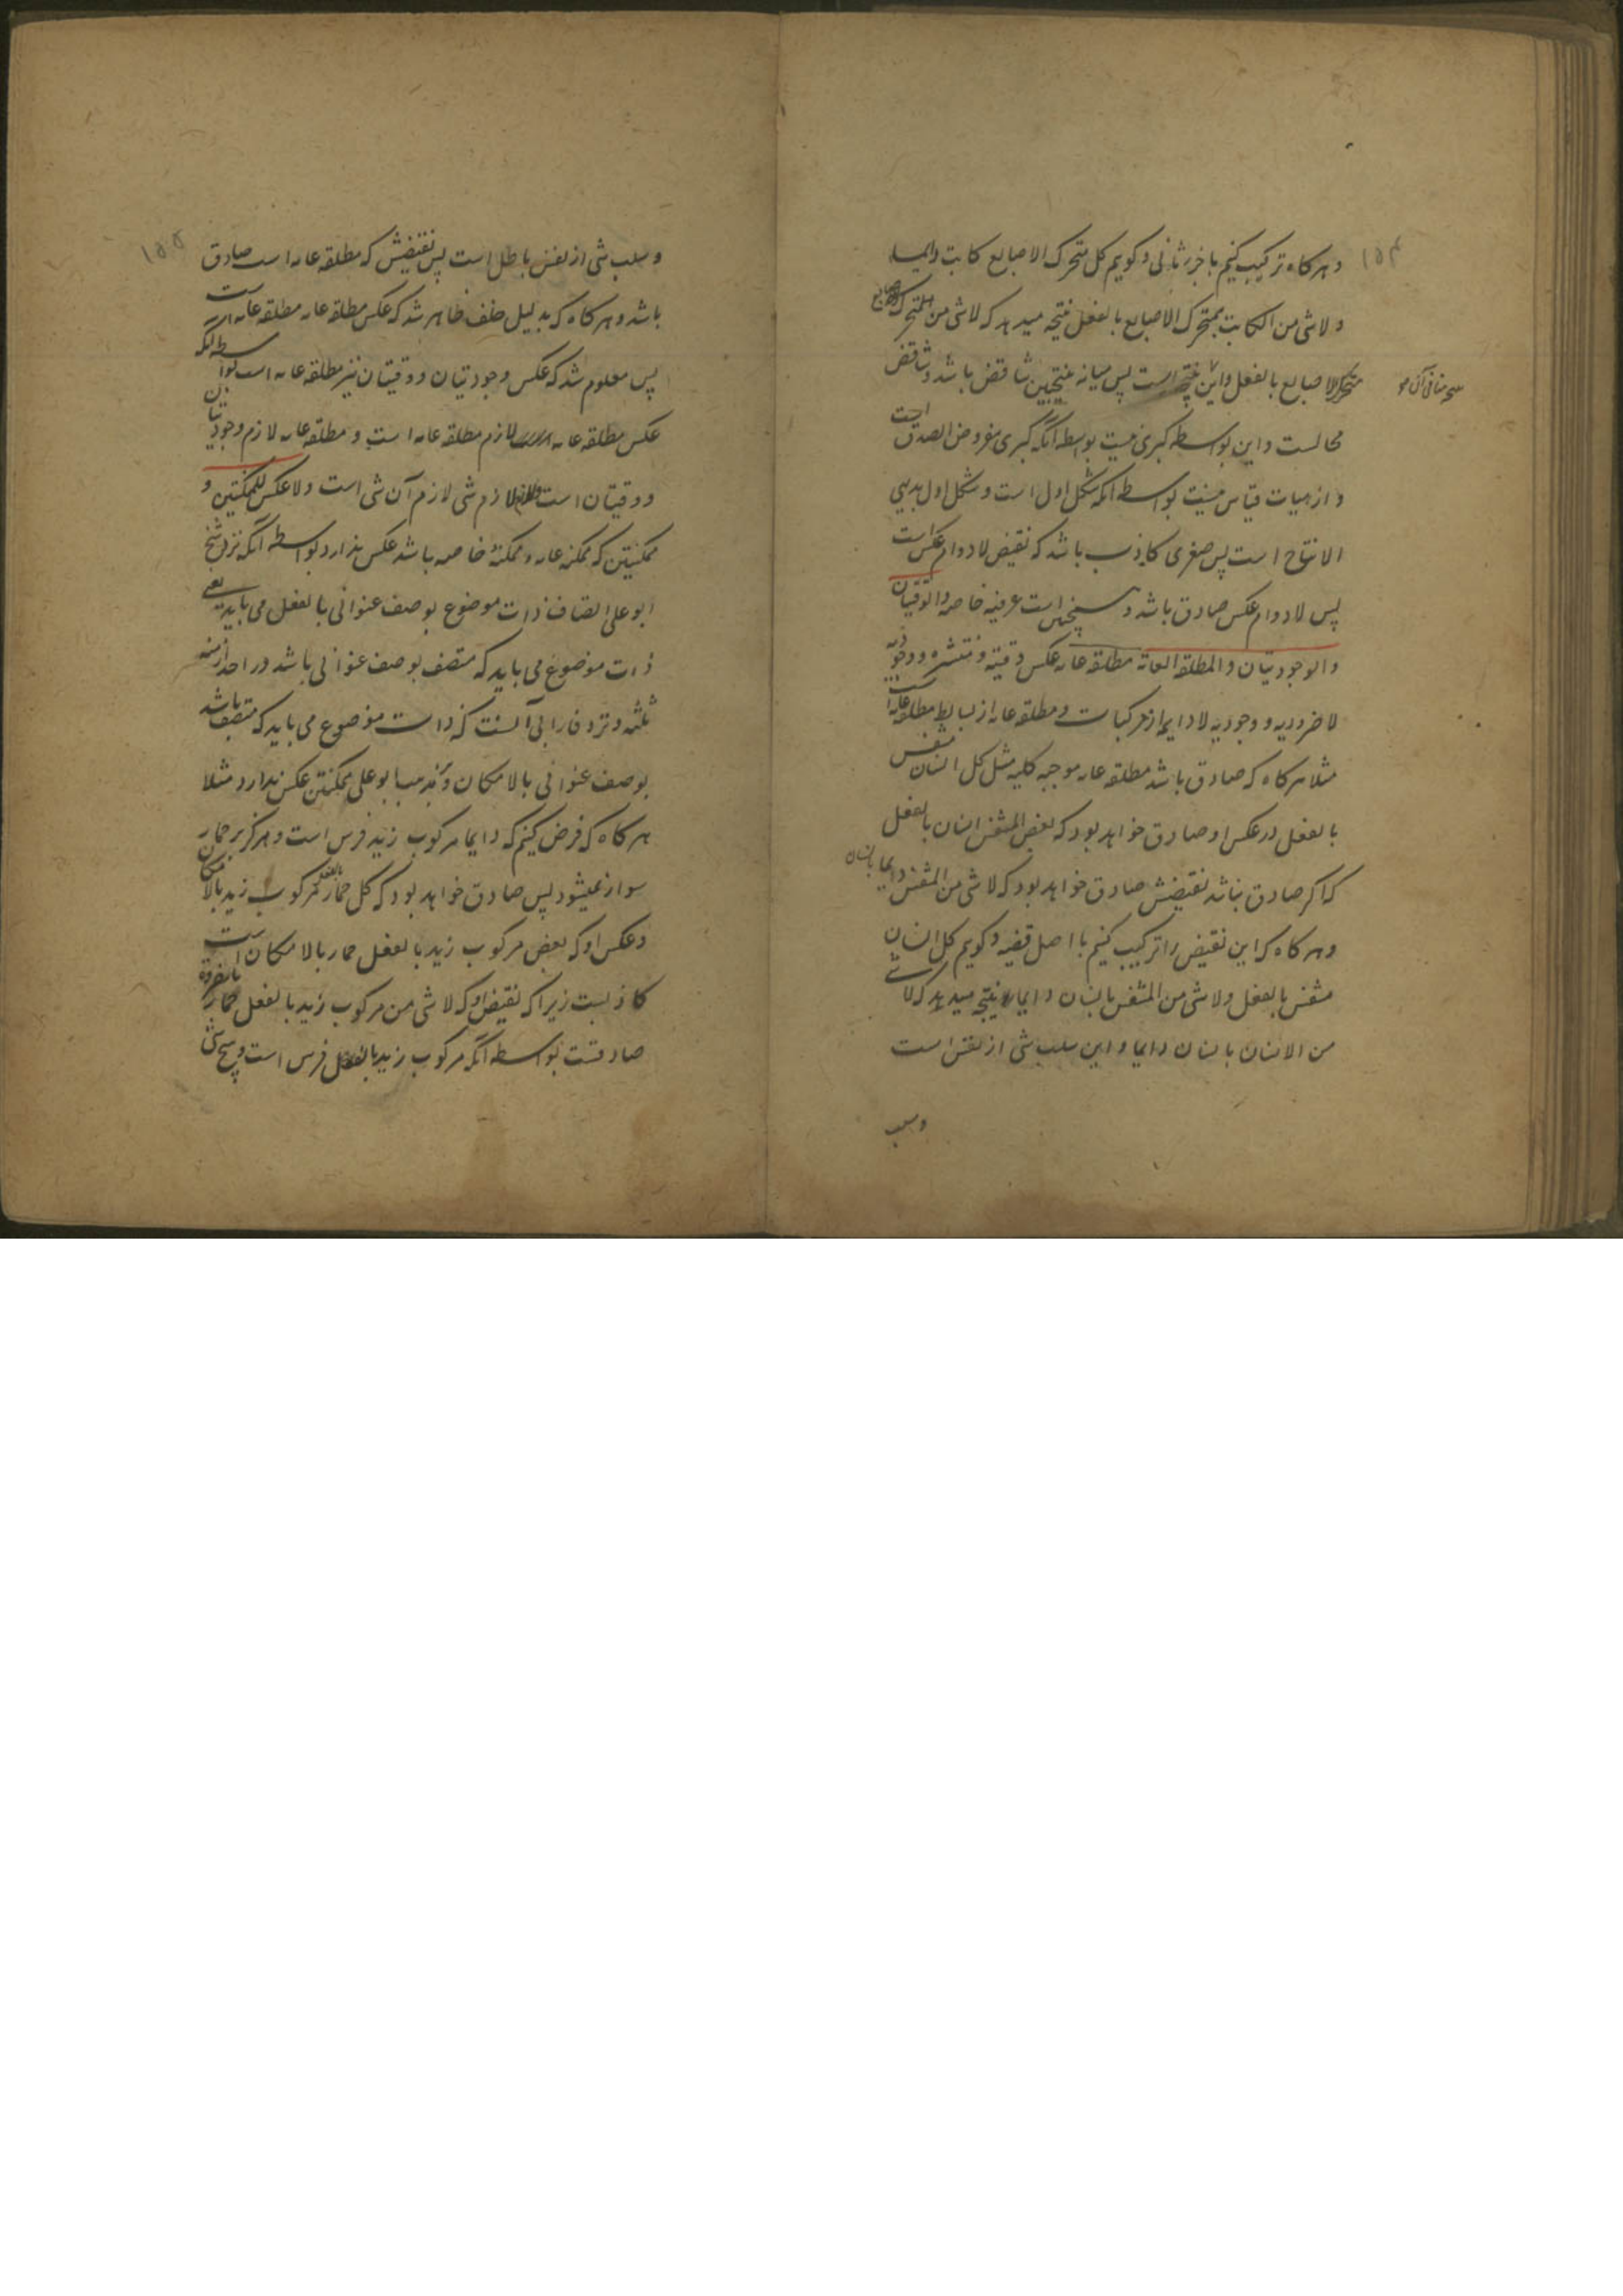 ۱۵۴
و هر کاه ترکیب کنیم با جزء ثانی و کویم کل متحرک الاصابع کاتب دایما
و لا شی من الکاتب بمتحرک الاصابع بالفعل نتیجه میدهد که لا شی من المتحرک الاصابع
بمتحرک الاصابع بالفعل و این نتیجه است پس میانه نتیجتین تناقض باشد و تناقض
محالست و این بواسطه کبری نیست بواسطه آنکه کبری مفروض الصدق است
و از هیات قیاس نیست بواسطه آنکه شکل اول است و شکل اول بدیهی
الانتاج است پس صغری کاذب باشد که نقیض لادوام عکس است
پس لادوام عکس صادق باشد و است عرفیه خاصه و الوقتیتان
و الوجودیتان و المطلقه العامه مطلقه عامه عکس وقتیه و منتشره و وجودیه
لا ضروریه و وجودیه لا دایمه از مرکبات و مطلقه عامه از بسایط مطلقه عامه است
مثلا هر کاه که صادق باشد مطلقه عامه موجبه کلیه مثل کل انسان متنفس
بالفعل در عکس او صادق خواهد بود که بعض المتنفس انسان بالفعل
که اکر صادق نباشد نقیضش صادق خواهد بود که لا شی من المتنفس بانسان دایما
و هر کاه که این نقیض را ترکیب کنیم با اصل قضیه و کویم کل انسان
متنفس بالفعل و لا شی من المتنفس بانسان دایما نتیجه میدهد که لا شی
من الانسان بانسان دایما و این سلب شی از نفس است
و سلب
۱۵۵
و سلب شی از نفس باطل است پس نقیضش که مطلقه عامه است صادق
باشد و هر کاه که بدلیل خلف ظاهر شد که عکس مطلقه عامه مطلقه عامه است
پس معلوم شد که عکس وجودیتان و وقتیتان نیز مطلقه عامه است بواسطه آنکه
عکس مطلقه عامه لازم مطلقه عامه است و مطلقه عامه لازم وجودیتان
و وقتیتان است و لازم لازم شی لازم آن شی است و لا عکس للممکنتین و
ممکنتین که ممکنه عامه و ممکنه خاصه باشد عکس ندارد بواسطه آنکه نزد شیخ
ابو علی اتصاف ذات موضوع بوصف عنوانی بالفعل می باید یعنی
ذات موضوع می باید که متصف بوصف عنوانی باشد در احد ازمنه
ثلثه و نزد فارابی آنست که ذات موضوع می باید که متصف باشد
بوصف عنوانی بالامکان و بمذهب ابو علی ممکنتین عکس ندارد مثلا
هر کاه که فرض کنیم که دایما مرکوب زید فرس است و هرکز بر حمار
سوار نمیشود پس صادق خواهد بود که کل حمار بالفعل مرکوب زید بالامکان
و عکس او که بعض مرکوب زید بالفعل حمار بالامکان است
کاذبست زیرا که نقیض او که لا شی من مرکوب زید بالفعل بحمار بالضروره
صادقست بواسطه آنکه مرکوب زید بالفعل فرس است و هیچ شی